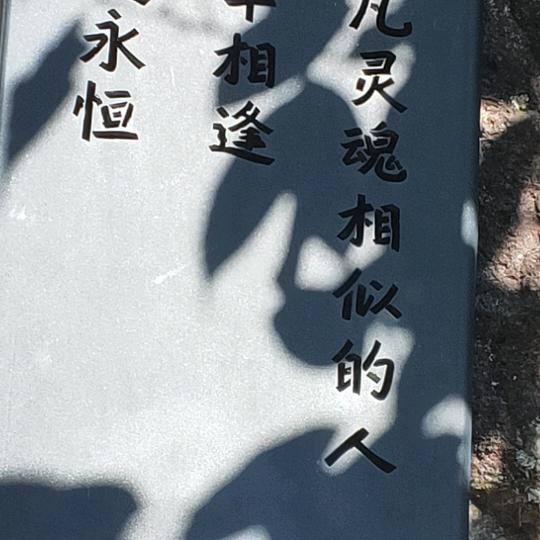 凡灵魂相似的人
相逢
永恒